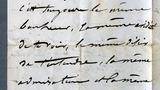 c'est toujours le même
bonheur, la même
de voir, le même désir
de l'entendre, la même
admiration et la même